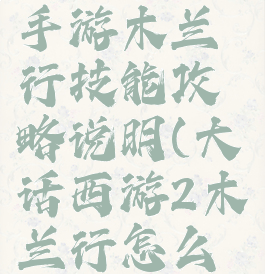 手游木兰
行技能攻
略说明(大
话西游2木
兰行怎么